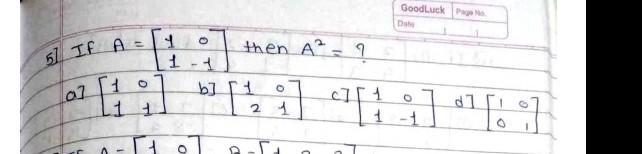 GoodLuck Page No.
Date
5] If A = [1 0
1 -1] then A² = ?
a] [1 0
1 1] b] [1 0
2 1] c] [1 0
1 -1] d] [1 0
0 1]